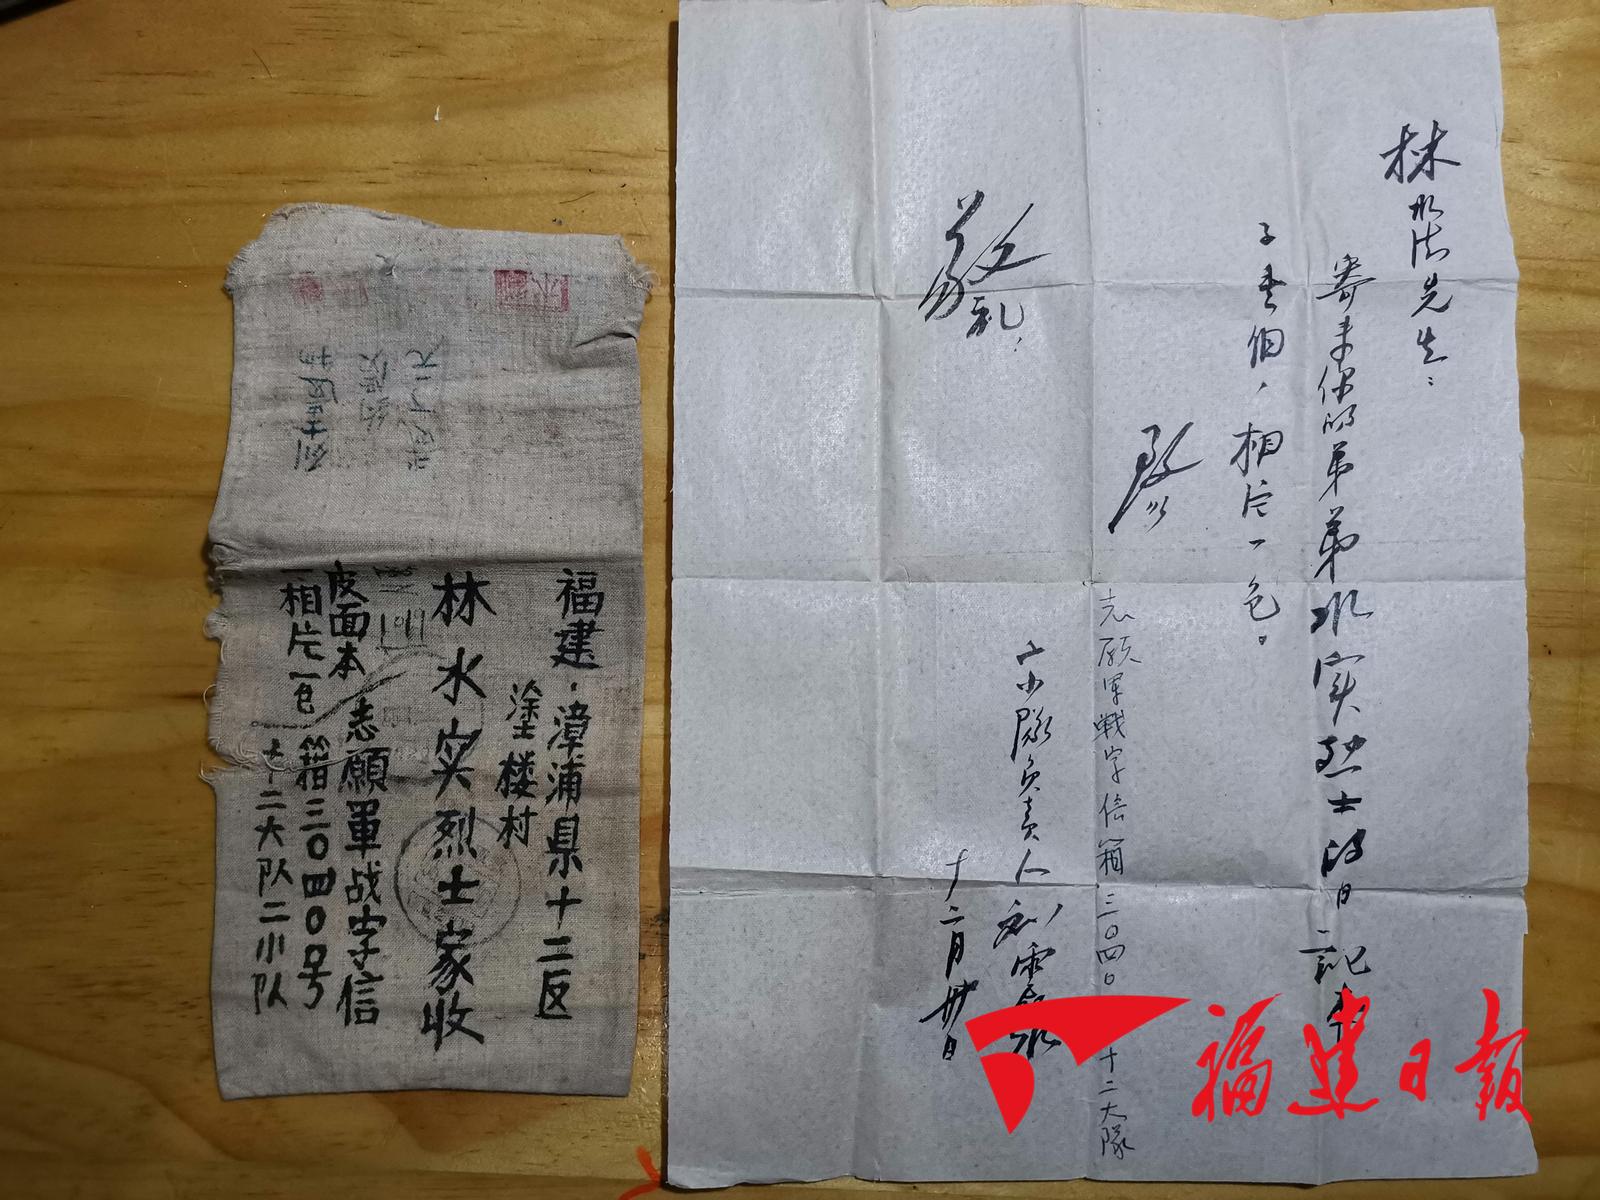 福建·漳浦県十二区
塗楼村
林水实烈士家收
志願軍战字信
箱三〇四〇号
十二大队二小队
皮面本
相片一包
林水法先生：
寄来你的弟弟水实烈士的日記本
子壹個，相片一包。
此致
敬礼！
志願軍戰字信箱三〇四〇
十二大隊
二小隊负責人刘
十二月卅日
福建日报